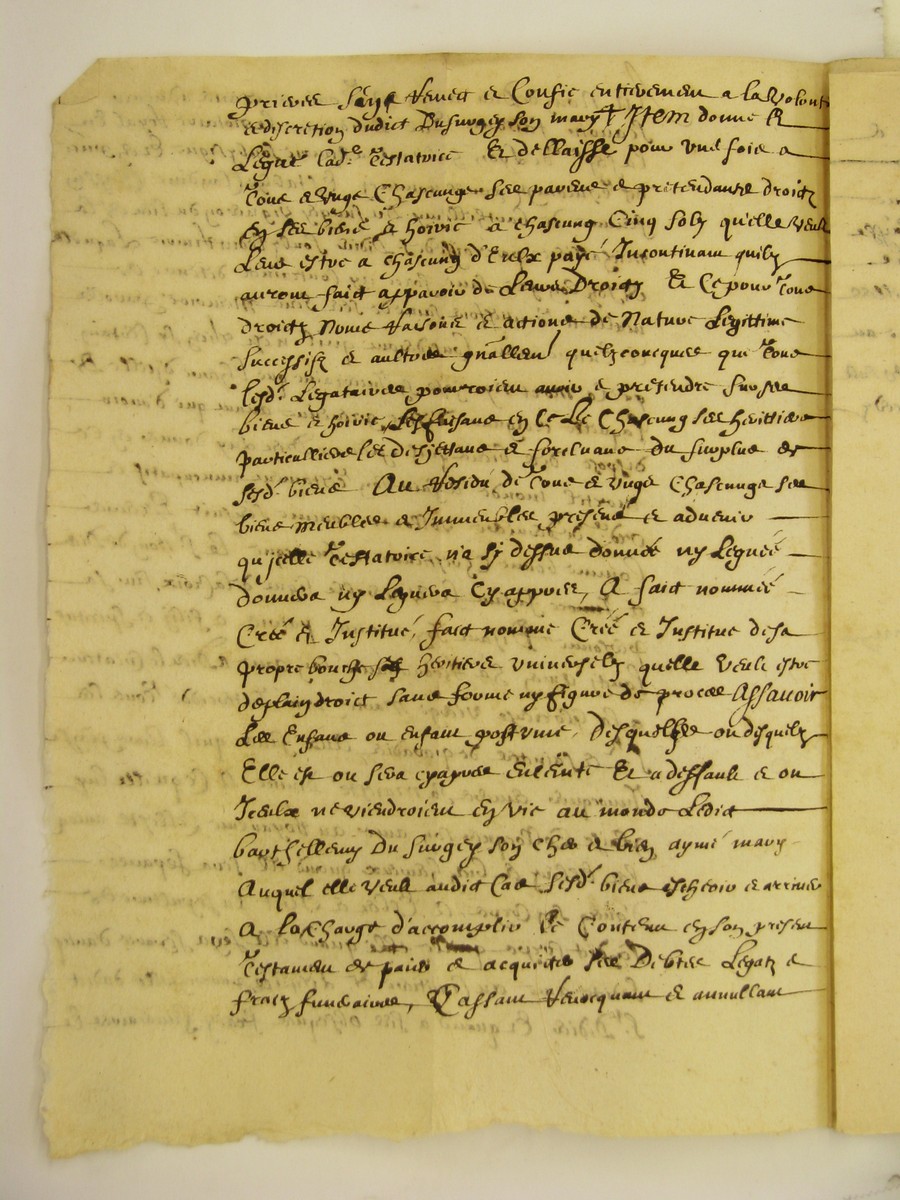 prieres s'en remect et confie entierement a la volont
et discretion dudict Dusurgey son mary + Item donne et
Legue lad.e Testatrice et dellaisse pour une fois a
Tous et ungs chascungs ses parens et pretendants droictz
en ses biens et hoirie a chascung cinq solz qu'elle veult
Leur estre a chascung d'Eulx payé Incontinant quilz
auront faict apparoir de Leurs Droictz et ce pour Tous
droictz noms raisons et actions de Nature Legittime
successifz et aultres gnallem.t quelzconcques que Tous
lesd. Legataires pourroient avoir et pretendre sur ses
biens et hoirie, les faisant en ce Le chascung ses herittiers
particulliers les dejettans et forcluans du surplus de
sesd. biens Au residu de Tous et ungs chascungs ses
biens meubles et Immeubles presens et advenir
qu'icelle Testatrice n'a sy dessus donnés ny Legués
donnera ny Leguera cy appres, A faict nommé
Créé et Institué, faict nomme Créé et Institue de sa
propre bouche ses heritiers universelz quelle veult estre
de plain droict sans forme ny figure de proces Assavoir
Les Enfans ou enfant postume, desquelles ou desquelz
Elle est ou sera cy apres enceinte et a deffault et ou
Iceulx ne viendroient en vie au monde Ledict
barthellemy Du surgey son cher et bien aymé mary
Auquel elle veult audict cas sesd. biens escheoir et arriver
A la Charge d'accomplir le Contenu en son present
Testament et paier et acquiter ses Debtes Legatz et
fraiz funeraires, Cassant revocquant et annullant